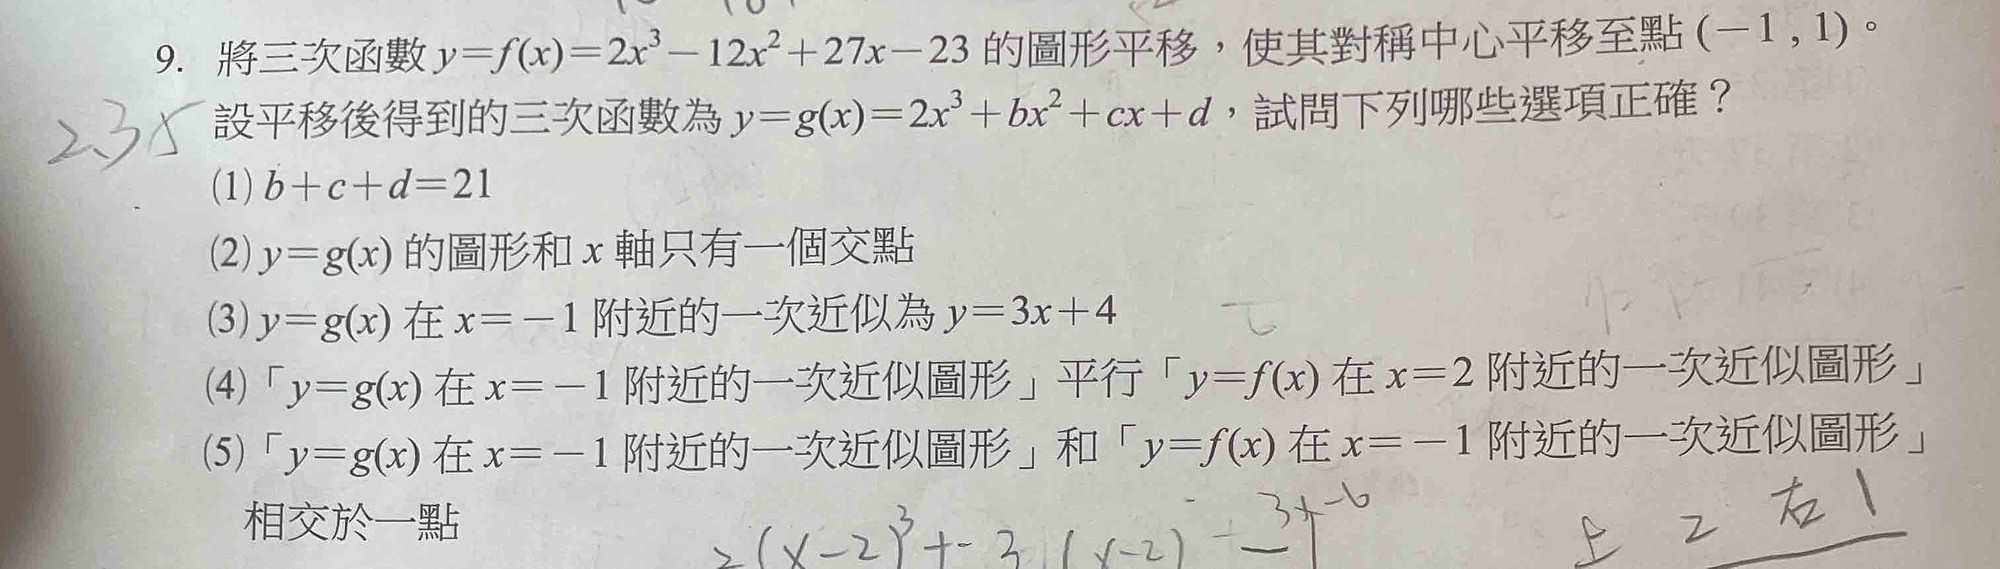 9. 將三次函數 y=f(x)=2x³-12x²+27x-23 的圖形平移，使其對稱中心平移至點 (-1 , 1)。
235 設平移後得到的三次函數為 y=g(x)=2x³+bx²+cx+d，試問下列哪些選項正確？
(1) b+c+d=21
(2) y=g(x) 的圖形和 x 軸只有一個交點
(3) y=g(x) 在 x=-1 附近的一次近似為 y=3x+4
(4)「y=g(x) 在 x=-1 附近的一次近似圖形」平行「y=f(x) 在 x=2 附近的一次近似圖形」
(5)「y=g(x) 在 x=-1 附近的一次近似圖形」和「y=f(x) 在 x=-1 附近的一次近似圖形」
相交於一點
2(x-2)³+ 3(x-2) -1 3x-6 上 2 右 1